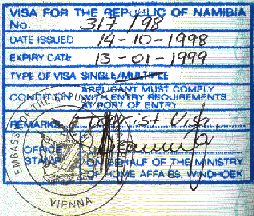 VISA FOR THE REPUBLIC OF NAMIBIA
No. 317/98
DATE ISSUED 14-10-1998
EXPIRY DATE 13-01-1999
TYPE OF VISA SINGLE/MULTIPLE
CONDITION APPLICANT MUST COMPLY
WITH ENTRY REQUIREMENTS
AT PORT OF ENTRY
REMARKS Tourist Visa
OFFICE
STAMP ON BEHALF OF THE MINISTRY
OF HOME AFFAIRS, WINDHOEK
EMBASSY
VIENNA